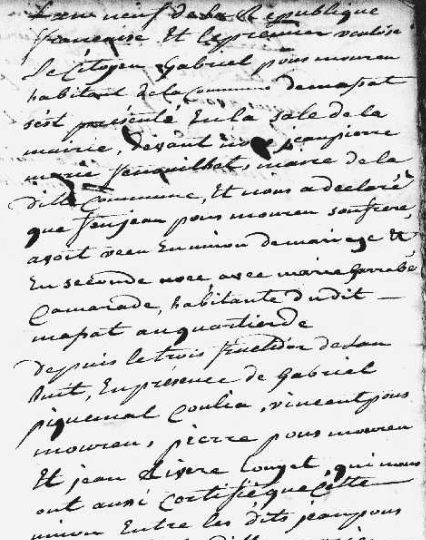 L'an neuf de la République
française Et le premier ventose
Le Citoyen Gabriel pons mouren
habitant de la Commune de massat
s'est présenté En la sale de la
mairie, devant nous jeanpierre
marie , maire de la
ditte Commune, Et nous a declaré
que jean pons mouren son frere,
avoit vecu En union de mariage Et
En seconde noce avec marie Garrabé
Camarade, habitante du dit
massat au quartier de
depuis le trois fructidor de l'an
huit, En présence de Gabriel
piquemal Coulia, vincent pons
mouren, pierre pons mouren
Et jean Rivere Louget, qui nous
ont aussi Certifié que Cette
union Entre les dits jean pons